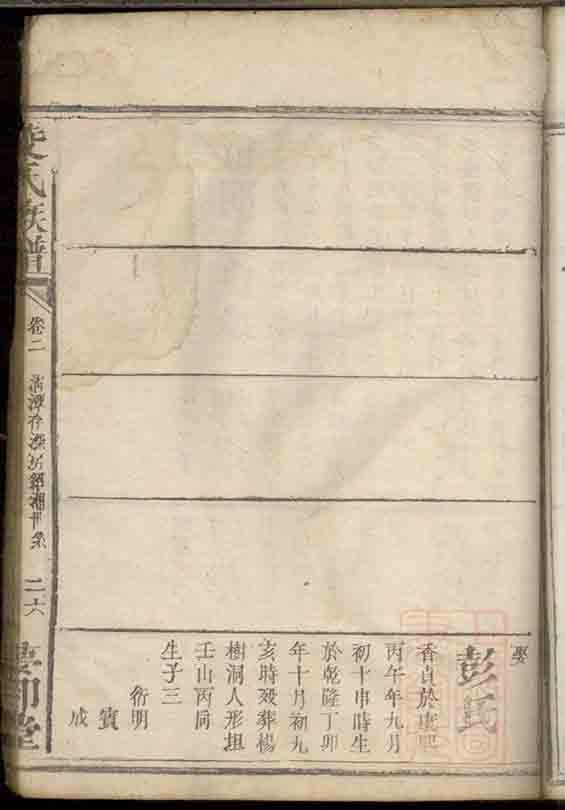 娶
彭氏
香貞於康熙
丙午年九月
初十申時生
於乾隆丁卯
年十月初九
亥時歿葬楊
樹洞人形坦
壬山丙向
生子三
衍明
賓
成
氏族譜
卷二
二六
堂